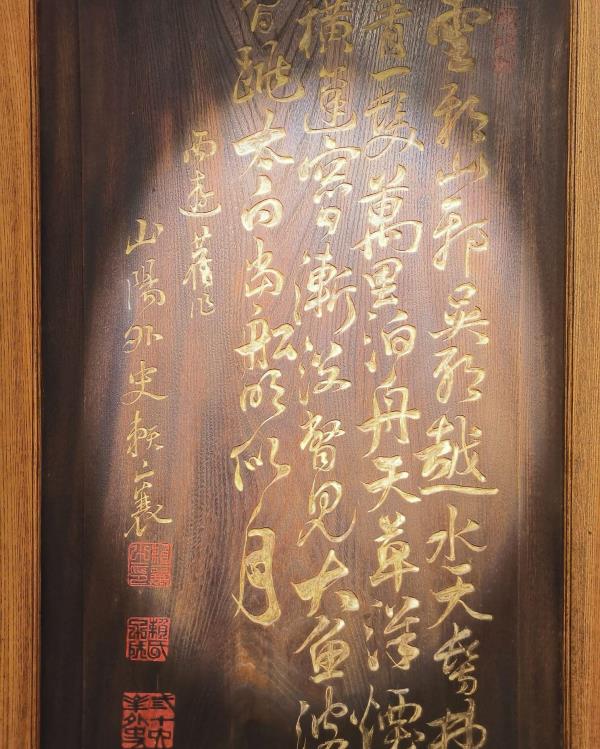 雲耶山耶呉耶越水天髣髴
青一髪萬里泊舟天草洋煙
横篷窓日漸没瞥見大魚波
間跳太白当船明似月
西遊舊作
山陽外史頼襄
頼氏子成